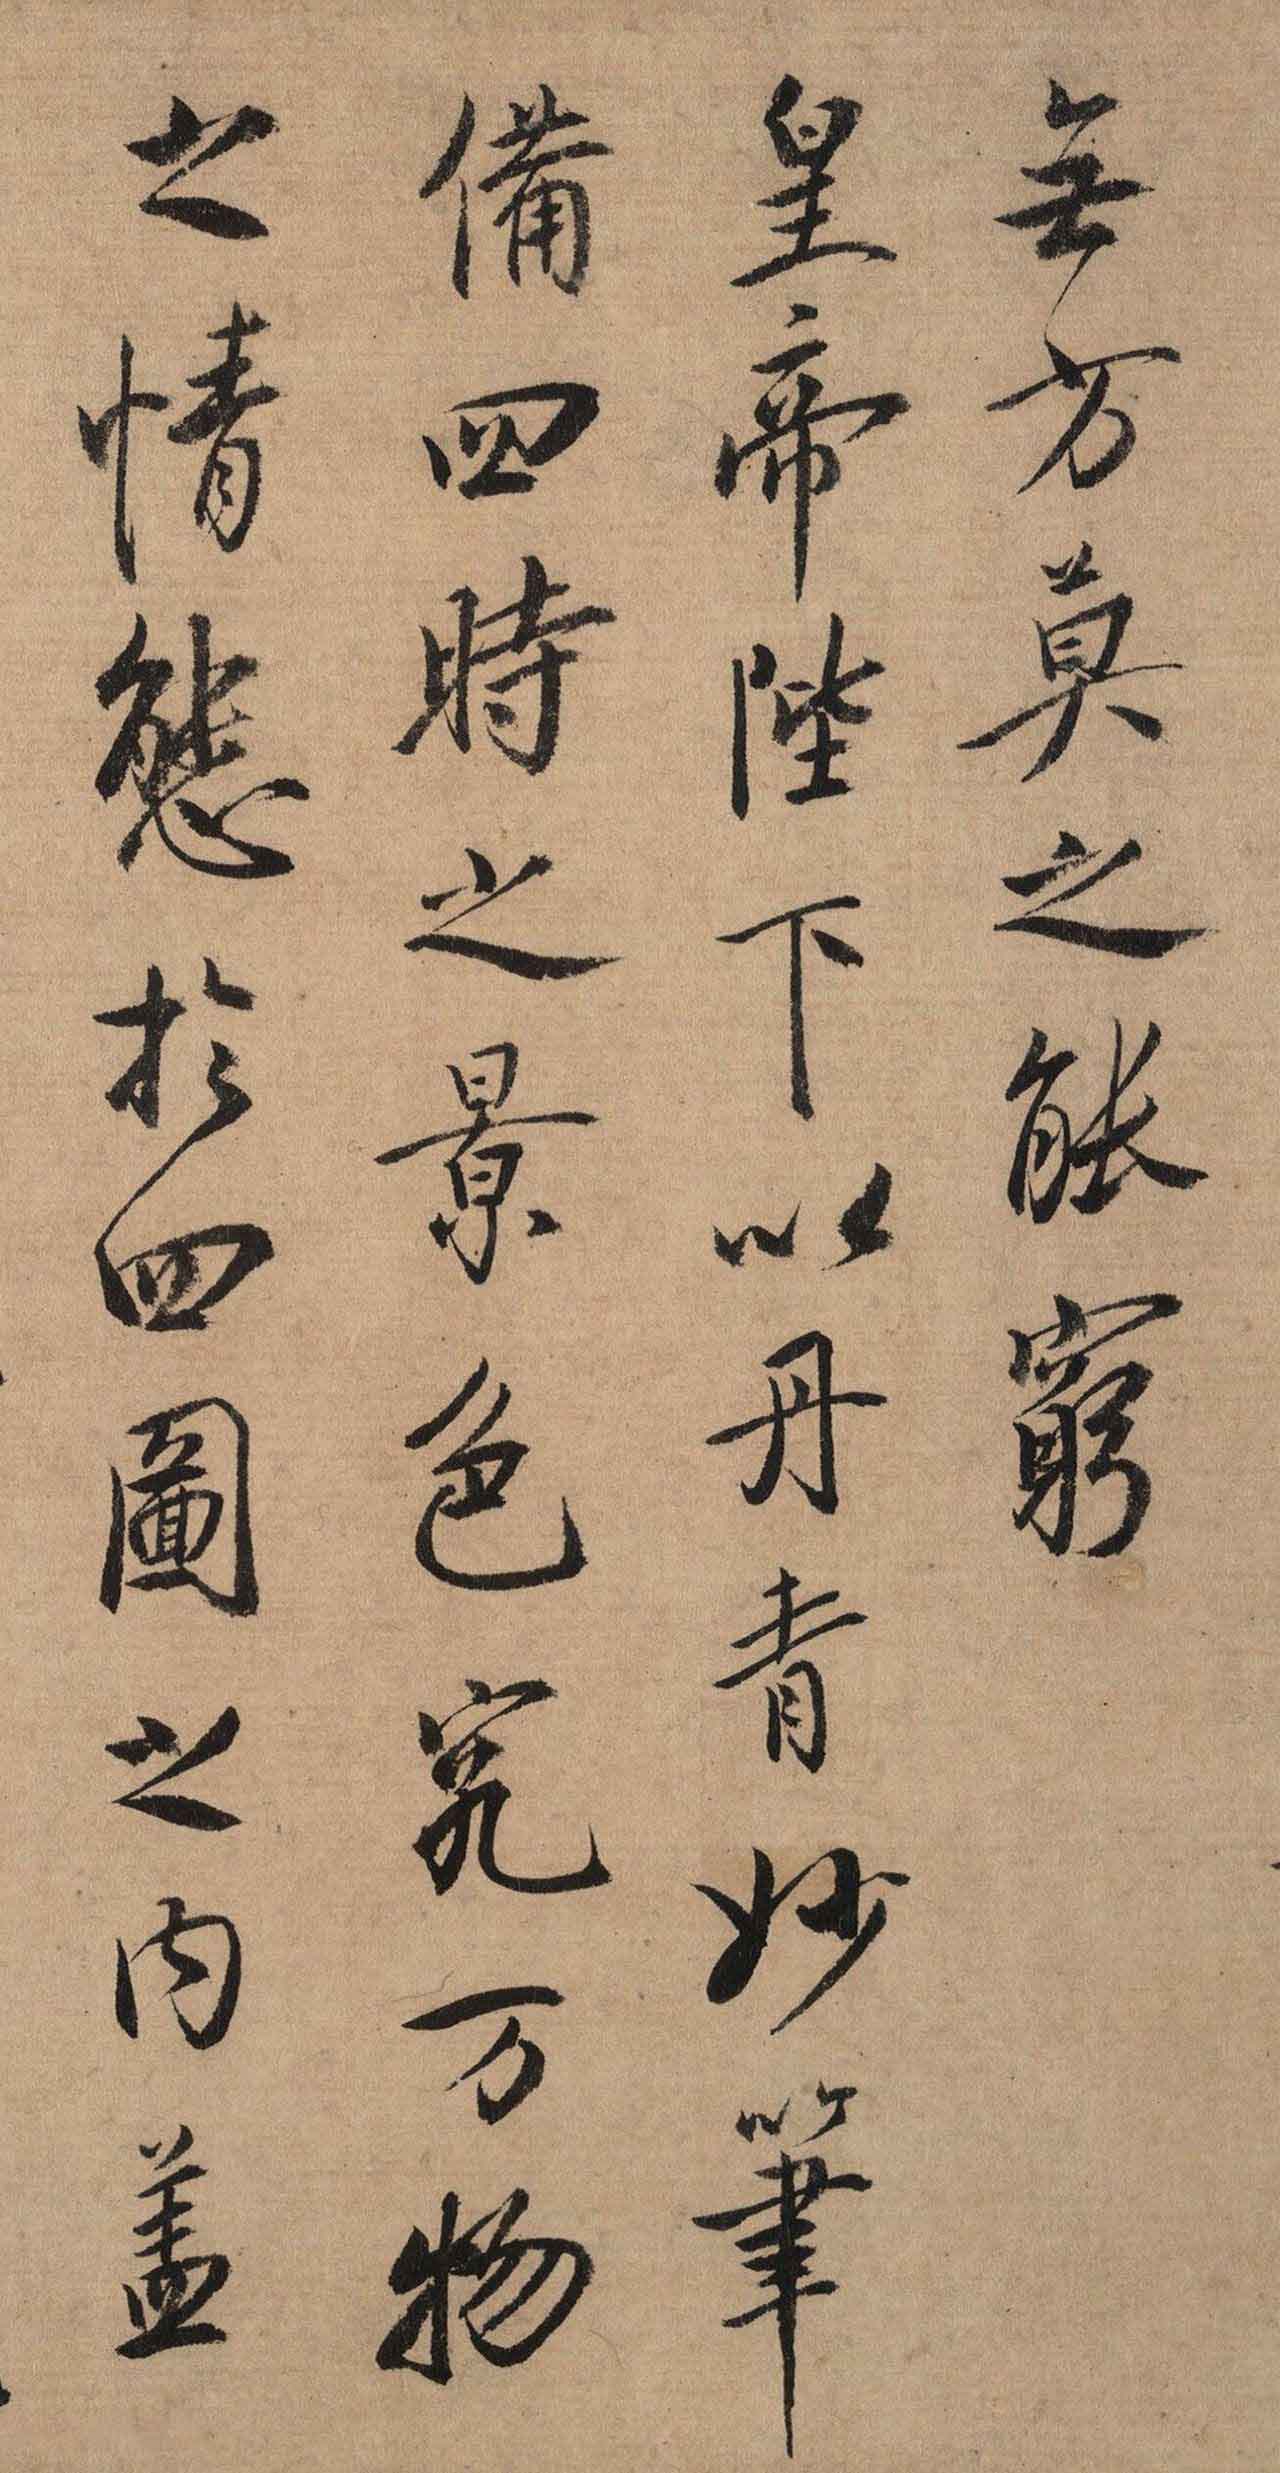 無方莫之能窮
皇帝陛下以丹青妙筆
備四時之景色究万物
之情態於四圖之內蓋